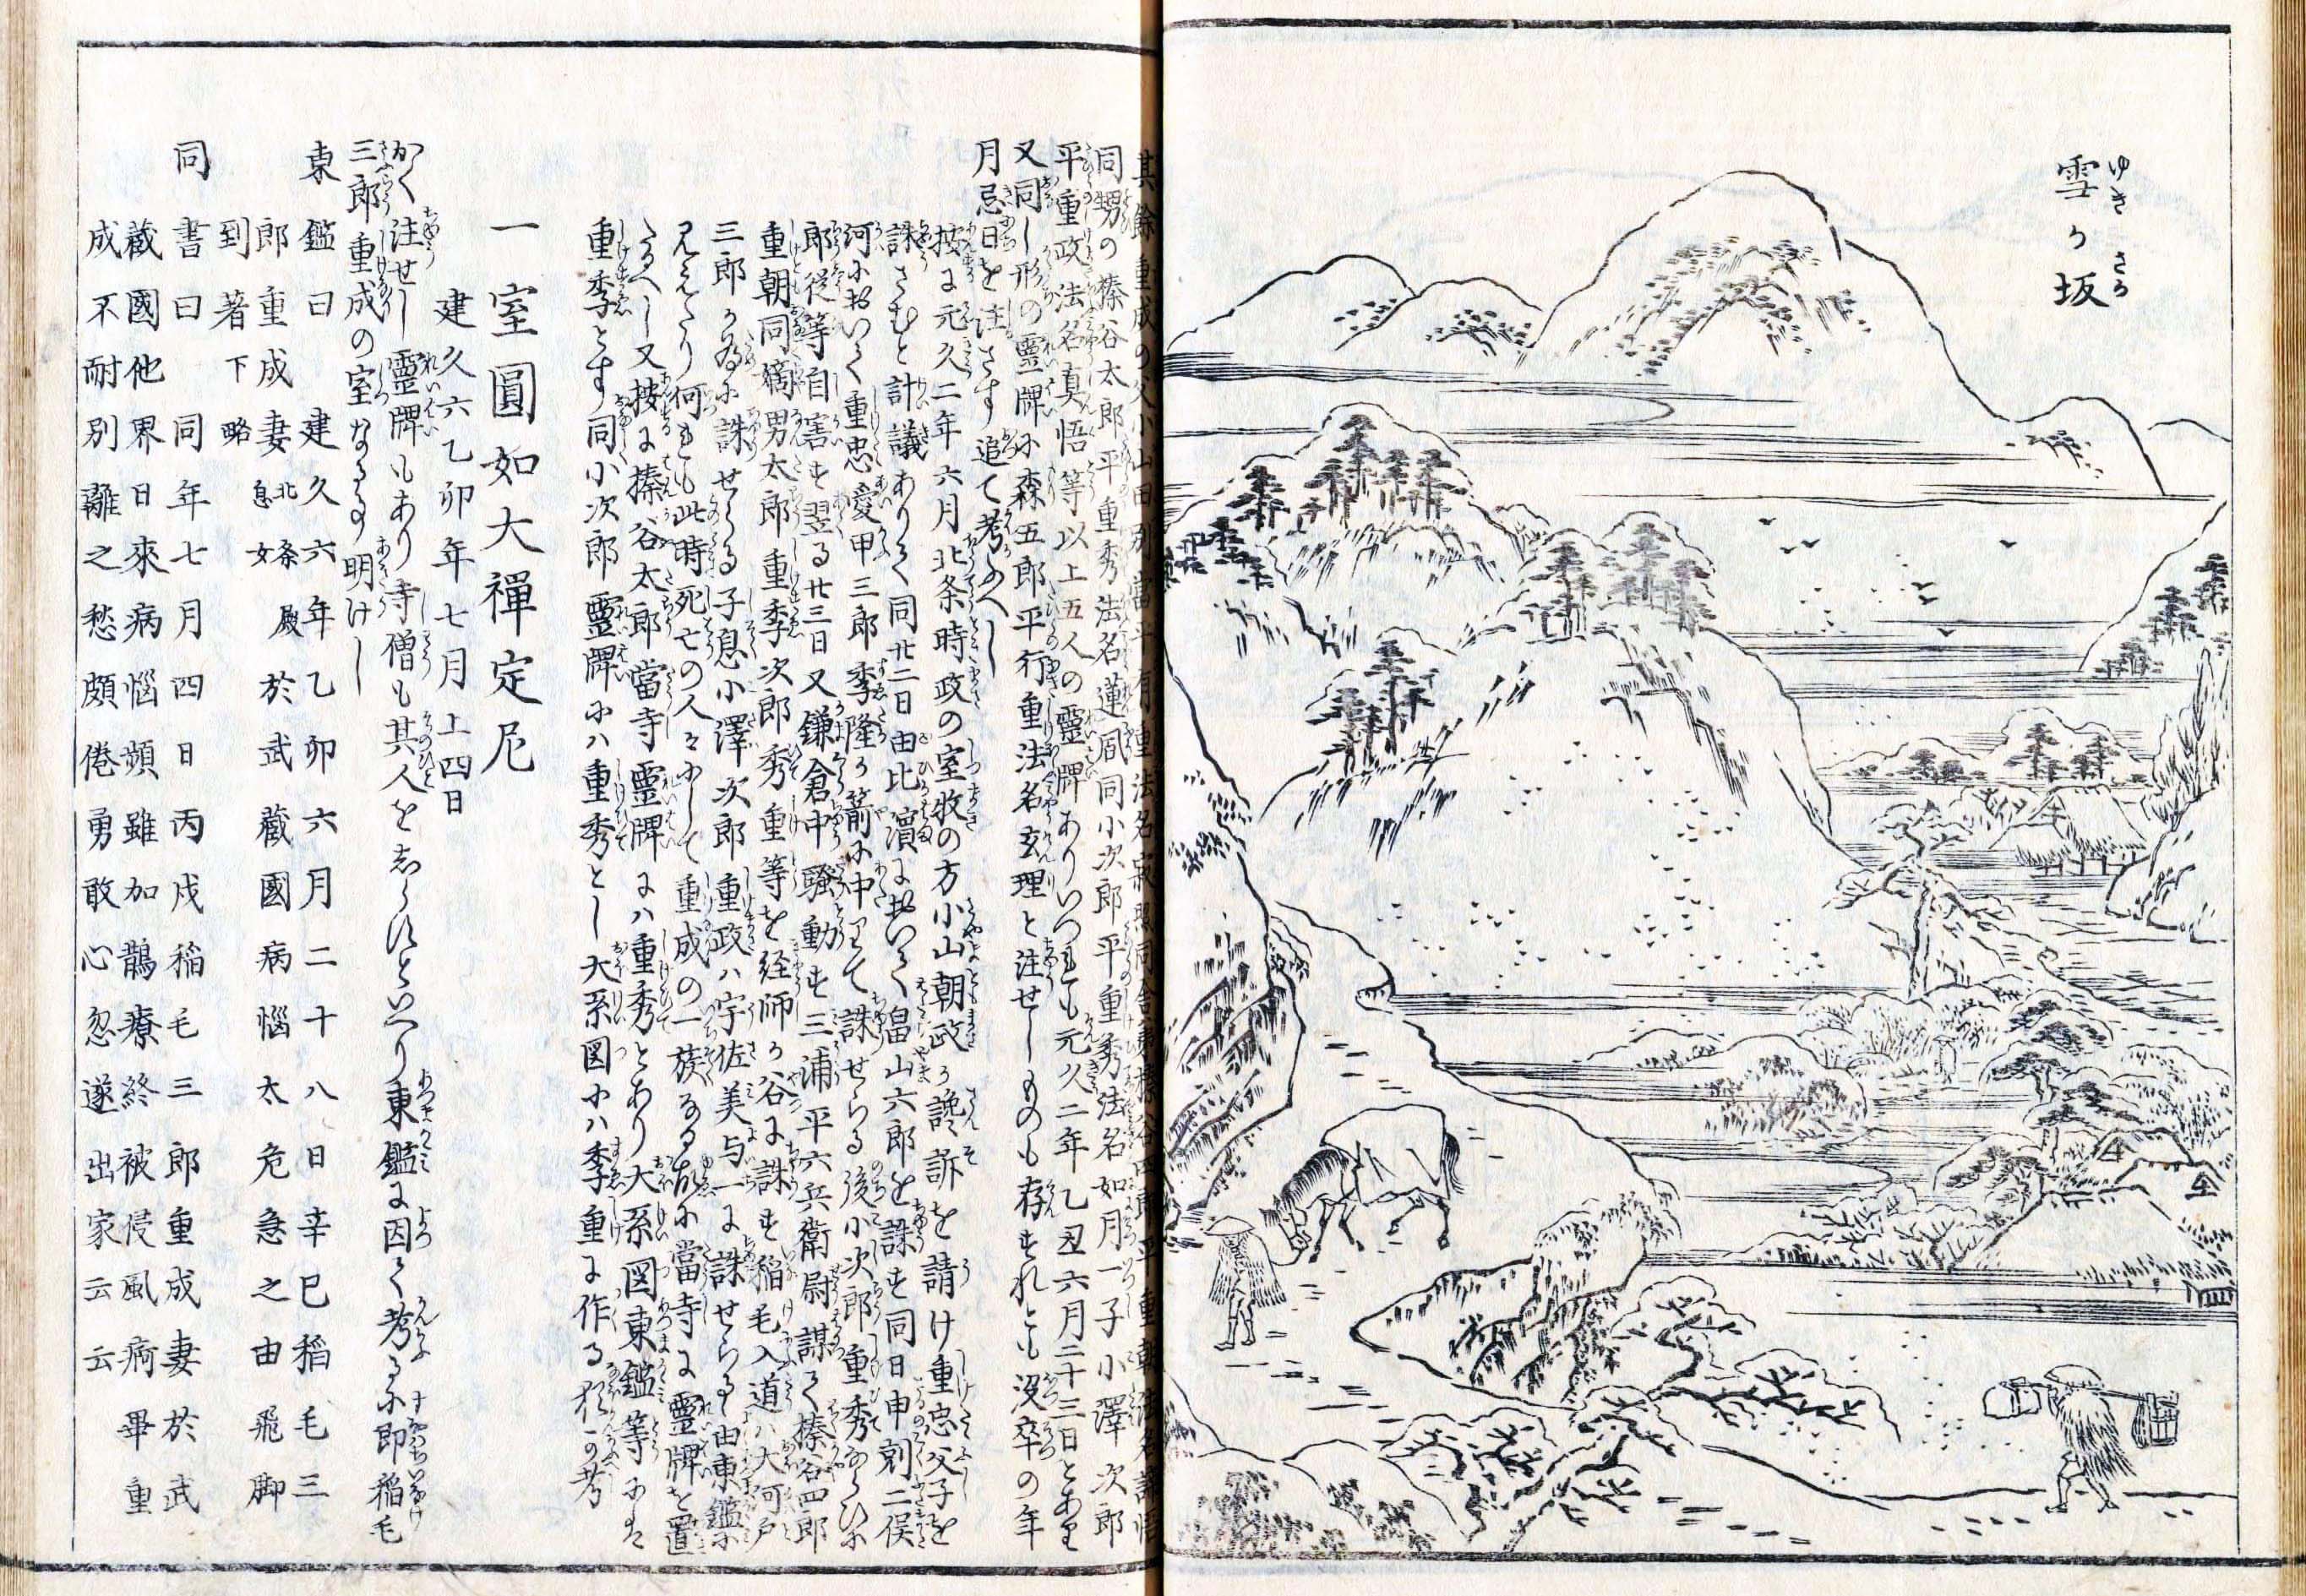 雪か坂
ゆき さか
其餘重成の父小山田別當平有重法名寂照同舎弟榛谷四郎平重朝法名諦悟
同甥の榛谷太郎平重秀法名蓮同小次郎平重季法名如月一子小澤次郎
平重政法名真悟等以上五人の靈牌ありいつれも元久二年乙丑六月二十三日とあり
又同し形の靈牌に森五郎平行重法名玄理と注せしものも存すれとも沒卒の年
月忌日を注さす追て考ふへし
按に元久二年六月北条時政の室牧の方小山朝政か讒訴を請け重忠父子を
誅さむと計議ありて同廿二日由比濵におゐて畠山六郎を誅す同日申刻二俣
河におゐて重忠愛甲三郎季隆か箭に中りて誅せらる後小次郎重秀ならひに
郎従等自害す翌る廿三日又鎌倉中騒動す三浦平六兵衛尉謀て榛谷四郎
重朝同嫡男太郎重季次郎秀重等を経師か谷に誅す稲毛入道ハ大河戸
三郎か為に誅せらる子息小澤次郎重政ハ宇佐美与一に誅せらるゝ由東鑑に
見えたり何れも此時死亡の人々にして重成の一族なる故に當寺に靈牌を置
たるへし又按に榛谷太郎當寺靈牌にハ重秀とあり大系図東鑑等にハ
重季とす同小次郎靈牌にハ重秀とし大系図にハ季重に作る猶可考
一 室圓如大禪定尼
建久六乙卯年七月上四日
かく注せし靈牌もあり寺僧も其人をしらすといへり東鑑に因て考るに即稲毛
三郎重成の室なる事明けし
東鑑曰 建久六年乙卯六月二十八日辛巳稲毛三
郎重成妻北条殿息女於武藏國病惱太危急之由飛脚
到著下略
同書曰 同年七月四日丙戌稲毛三郎重成妻於武
藏國他界日來病惱頻雖加鵲療終被侵風病畢重
成不耐別離之愁頗倦勇敢心忽遂出家云云